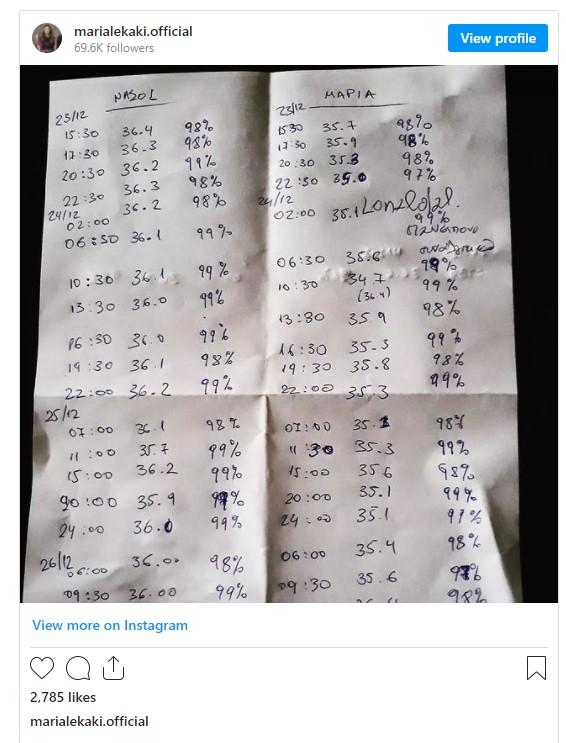 marialekaki.official
69.6K followers
View profile
ΝΑΣΟΣ
23/12
15:30 36.4 98%
17:30 36.3 98%
20:30 36.2 99%
22:30 36.3 98%
24/12
02:00 36.2 98%
06:30 36.1 99%
10:30 36.1 99%
13:30 36.0 99%
16:30 36.0 99%
19:30 36.1 98%
22:00 36.2 99%
25/12
07:00 36.1 98%
11:00 35.7 99%
15:00 36.2 99%
20:00 35.9 99%
24:00 36.0 99%
26/12
06:00 36.00 98%
09:30 36.00 99%
ΜΑΡΙΑ
23/12
15:30 35.7 98%
17:30 35.9 98%
20:30 35.3 98%
22:30 35.0 97%
24/12
02:00 35.1 99%
06:30 35.6 99%
10:30 34.7 99%
(36.4)
13:30 35.9 98%
16:30 35.3 99%
19:30 35.8 98%
22:00 35.3 99%
07:00 35.1 98%
11:30 35.3 99%
15:00 35.6 98%
20:00 35.1 99%
24:00 35.1 97%
06:00 35.4 98%
09:30 35.6 97%
98%
View more on Instagram
2,785 likes
marialekaki.official